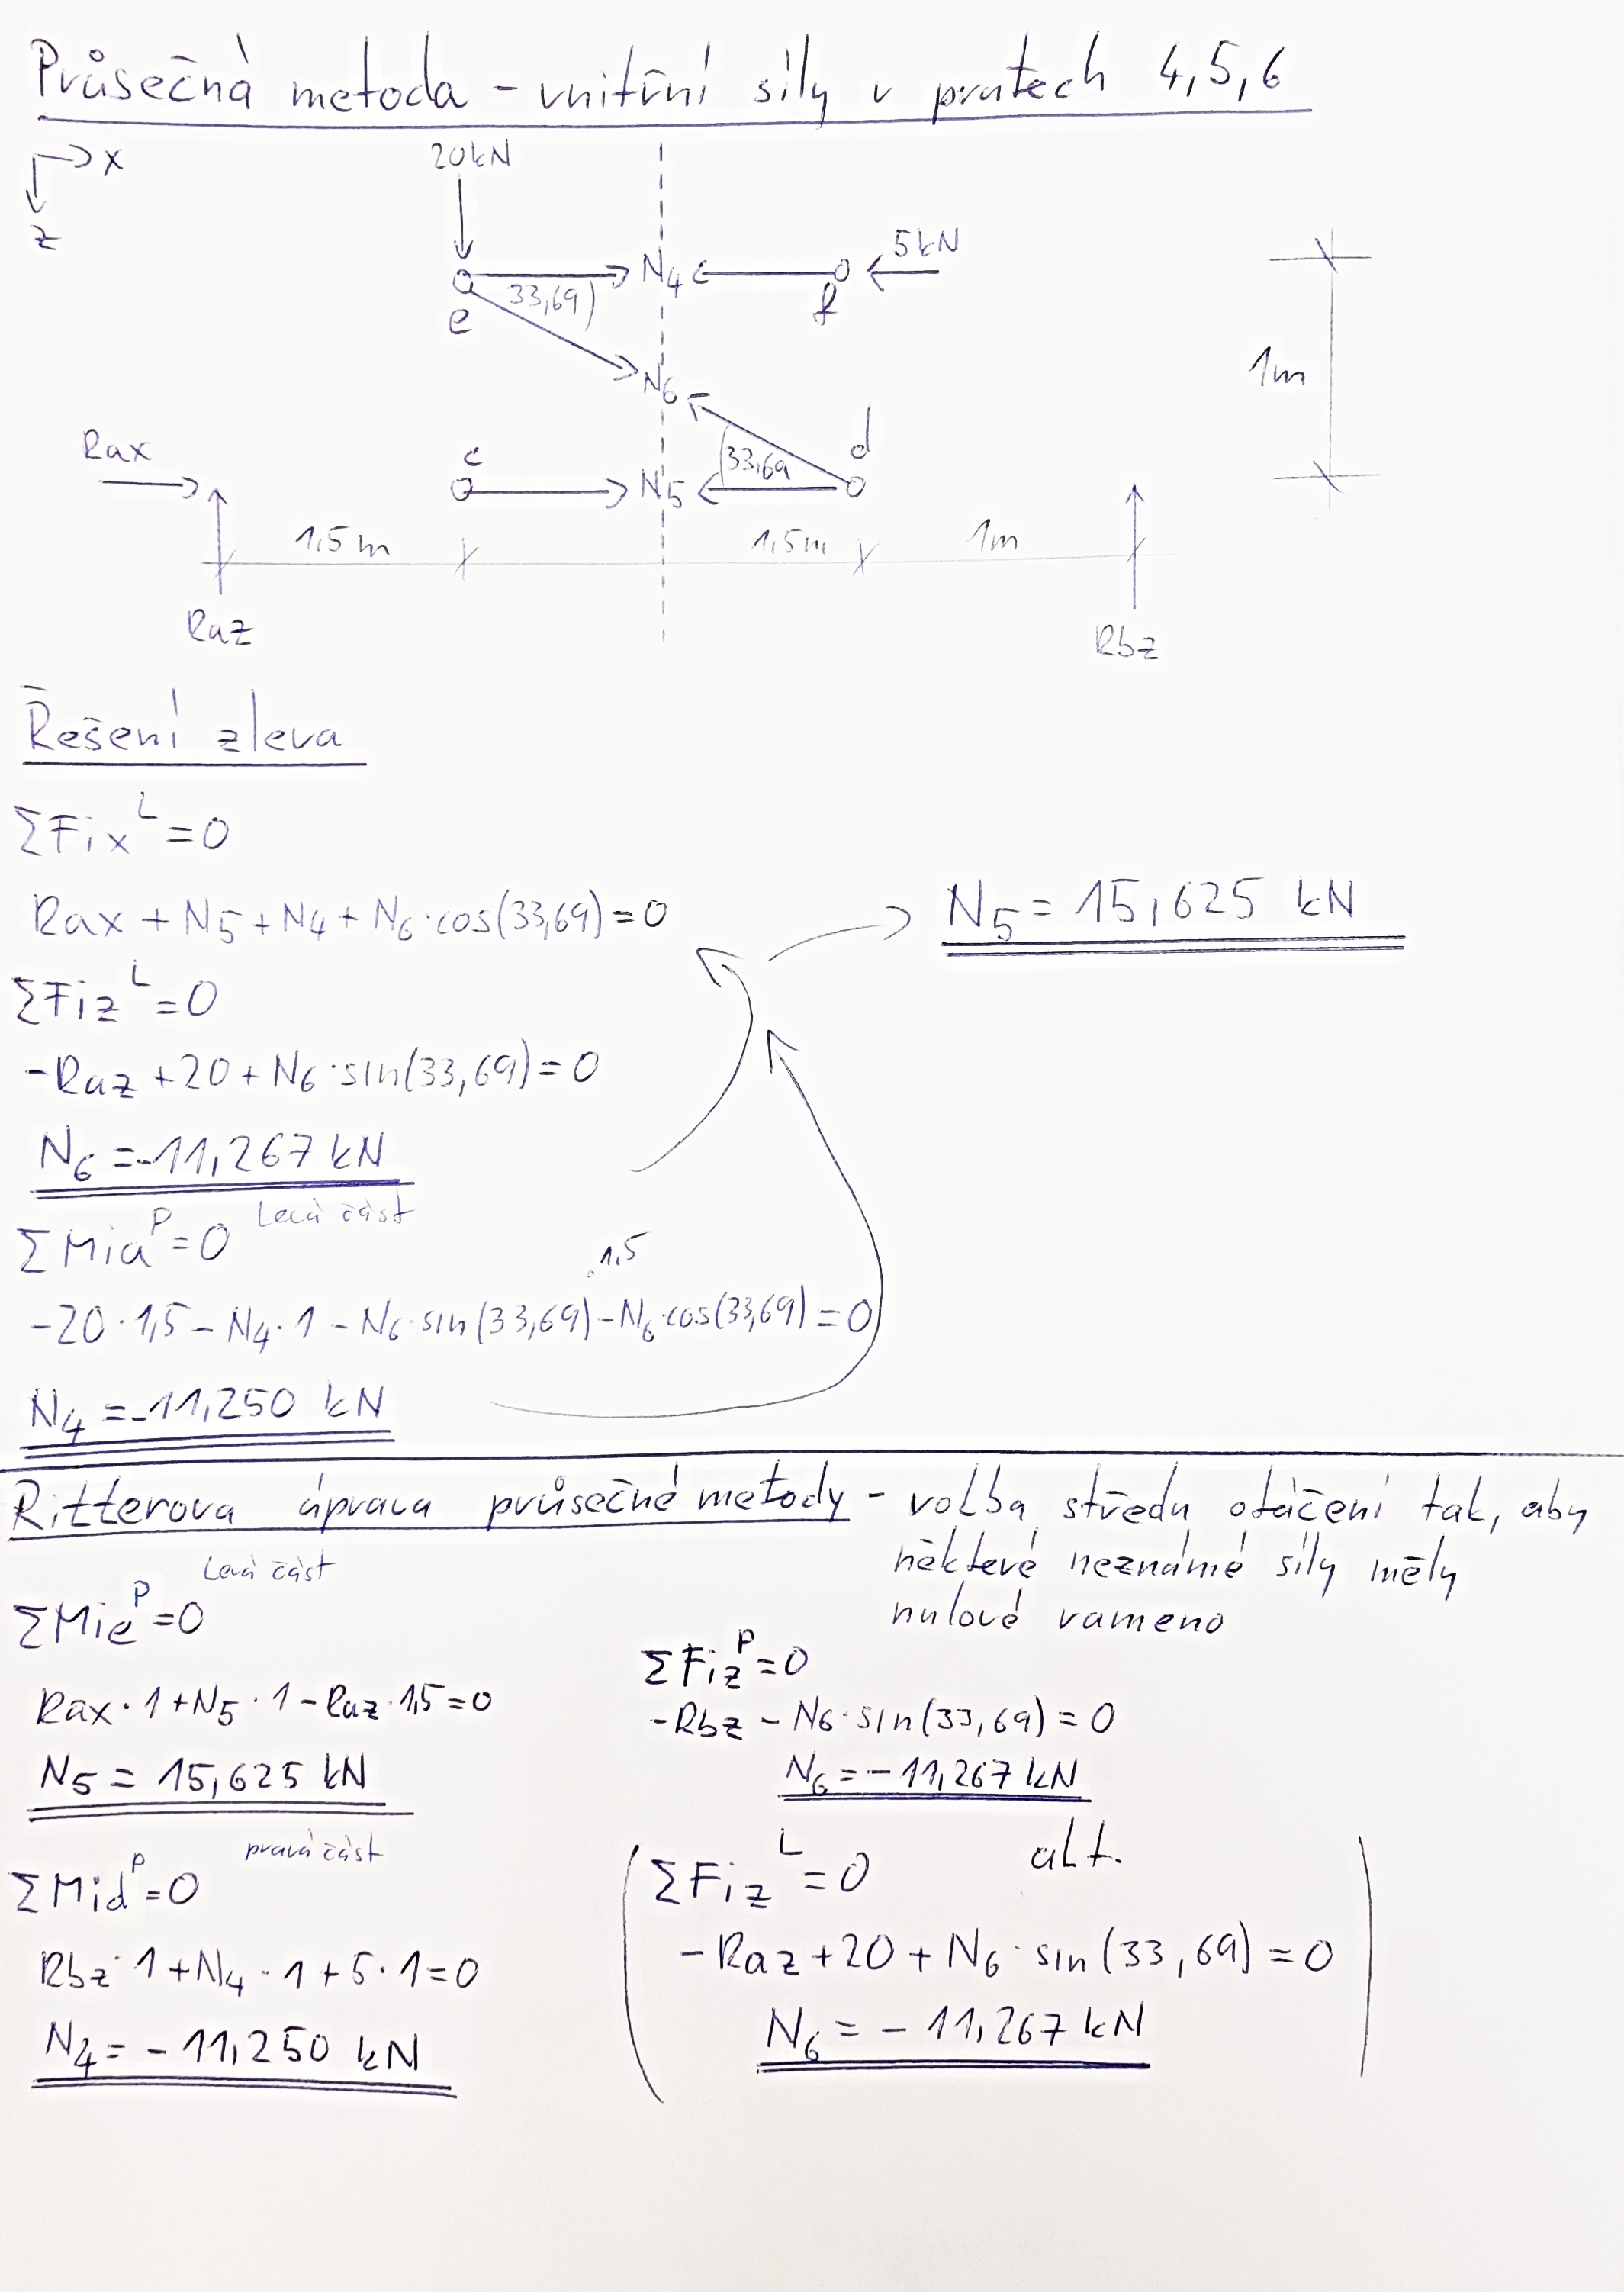 Průsečná metoda - vnitřní síly v prutech 4,5,6
x
z
20kN
N4
5kN
33,69
e
f
N6
1m
Rax
c
d
33,69
N5
1,5m
1,5m
1m
Raz
Rbz
Řešení zleva
ΣFix^L=0
Rax + N5 + N4 + N6·cos(33,69)=0
N5 = 15,625 kN
ΣFiz^L=0
-Raz +20 + N6·sin(33,69)=0
N6 =-11,267 kN
Levá část
ΣMia^P=0
·1,5
-20·1,5 - N4·1 - N6·sin(33,69) - N6·cos(33,69)=0
N4 =-11,250 kN
Ritterova úprava průsečné metody - volba středu otáčení tak, aby
některé neznámé síly měly
nulové rameno
Levá část
ΣMie^P=0
Rax·1 + N5·1 - Raz·1,5=0
N5 = 15,625 kN
pravá část
ΣMid^P=0
Rbz·1 + N4·1 + 5·1=0
N4 = -11,250 kN
ΣFiz^P=0
-Rbz - N6·sin(33,69)=0
N6 = -11,267 kN
alt.
(ΣFiz^L=0
-Raz +20 + N6·sin(33,69)=0
N6 = -11,267 kN)